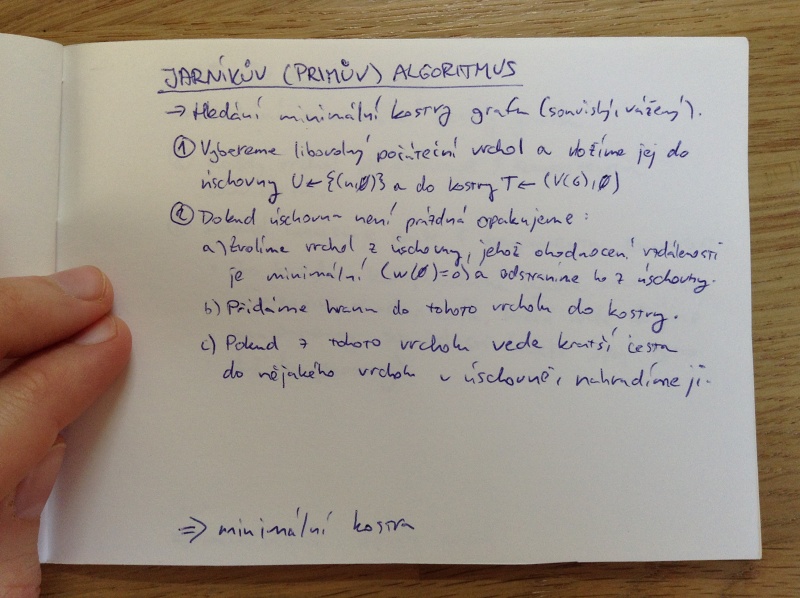 JARNÍKŮV (PRIMŮV) ALGORITMUS
→ Hledání minimální kostry grafu (souvislý, vážený).
① Vybereme libovolný počáteční vrchol a vložíme jej do
úschovny U ← {(u,∅)} a do kostry T ← (V(G),∅)
② Dokud úschovna není prázdná opakujeme:
a) Zvolíme vrchol z úschovny, jehož ohodnocení vzdálenosti
je minimální (w(∅)=0) a odstraníme ho z úschovny.
b) Přidáme hranu do tohoto vrcholu do kostry.
c) Pokud z tohoto vrcholu vede kratší cesta
do nějakého vrcholu v úschovně, nahradíme ji.
⇒ minimální kostra